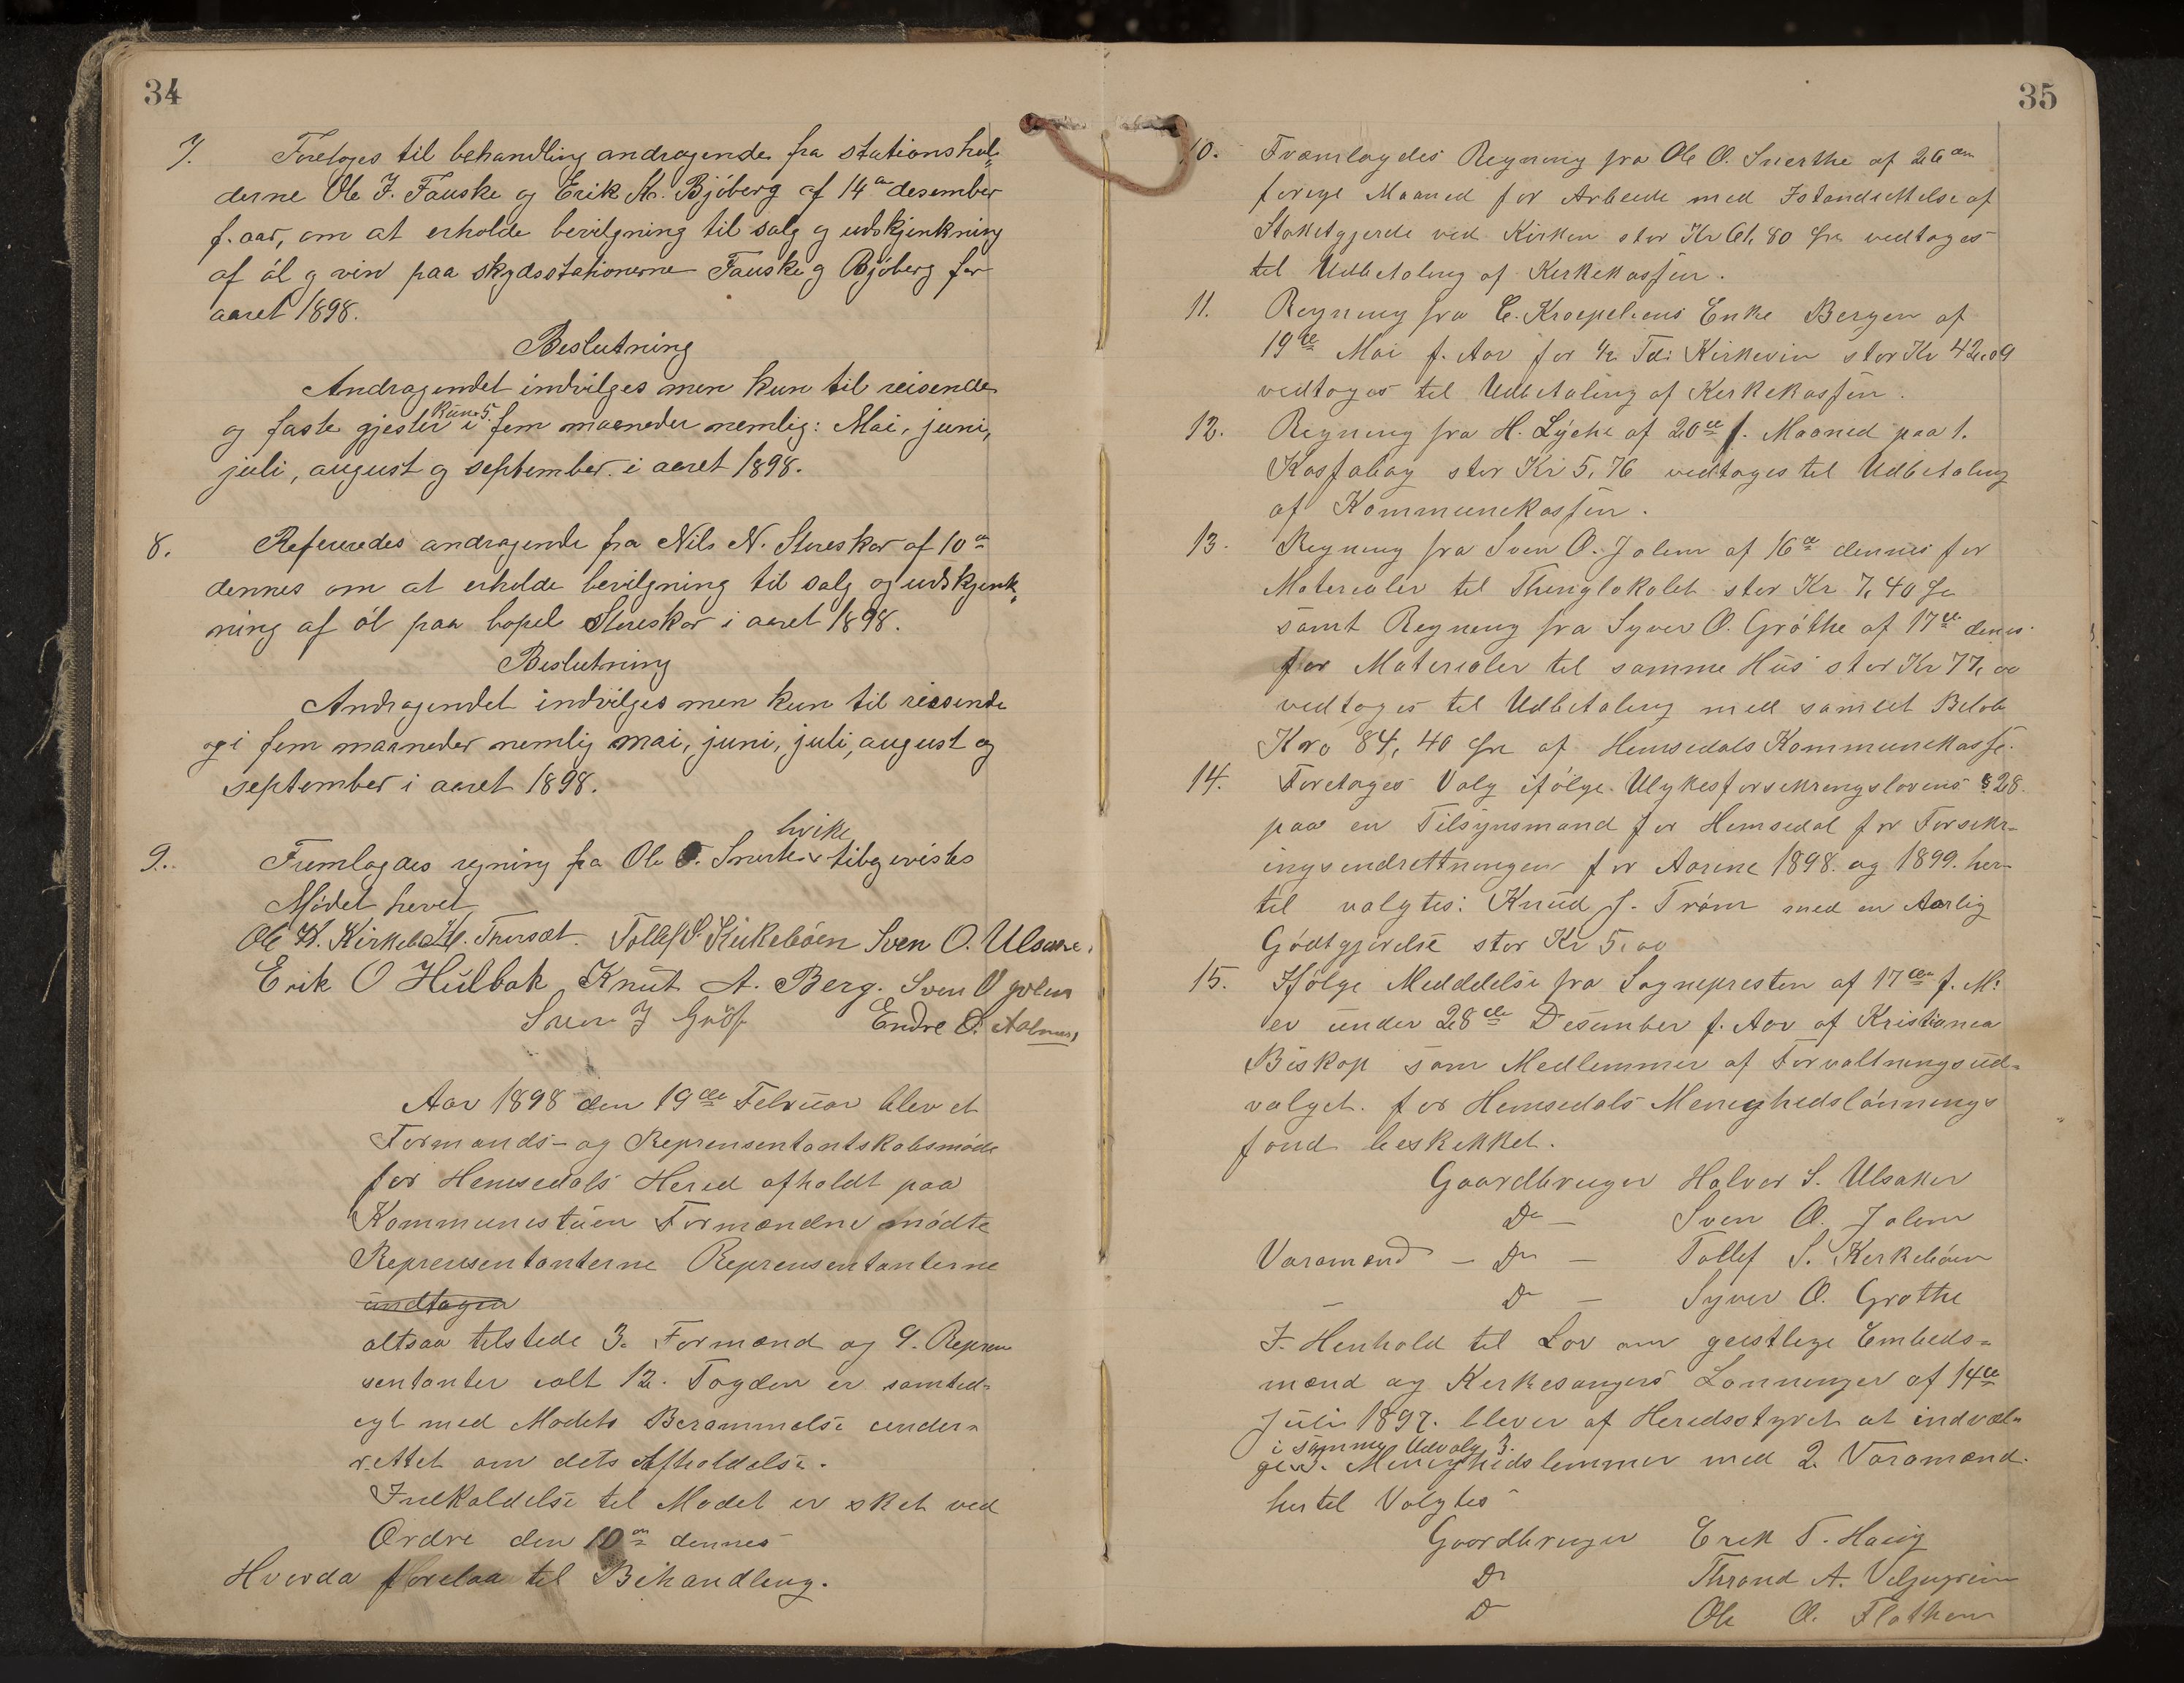 34
7. Foretoges til behandling andragende fra stationshol-
derne Ole J. Fauske og Erik K. Bjöberg af 14de desember
f. aar, om at erholde bevilgning til salg og udskjenkning
af öl og vin paa skydsstationerne Fauske og Bjöberg for
aaret 1898.
Beslutning
Andragendet indvilges men kun til reisende
kun 5
og faste gjester i fem maaneder nemlig: Mai, juni,
juli, august og september i aaret 1898.
8. Refereredes andragende fra Nils N. Storeskar af 10de
dennes om at erholde bevilgning til salg og udskjenk-
ning af öl paa bopel Storeskar i aaret 1898.
Beslutning
Andragendet indvilges men kun til reisende
og i fem maaneder nemlig mai, juni, juli, august og
september i aaret 1898.
hvike
9. Fremlagdes regning fra Ole O. Snerte tilbgevistes
Mödet hevet
Ole K. Kirkeb. H. Thorset. Tollef S. Kirkeböen Sven O. Ulsaker
Erik O Hulbak Knut A. Berg. Sven O Jolem
Sven J Gröf Endre O.
Aar 1898 den 19de Februar blev et
Formands- og Reprensentantskabsmöde
for Hemsedals Hered afholdt paa
Kommunestuen Formændne mödte
Reprensentanterne Reprensentanterne
undtagen
altsaa tilstede 3. Formænd og 9. Repren
sentanter ialt 12. Fogden er samted-
egt med Modets Berammelse under-
rettet om dets Afholdelse.
Indkaldelse til Modet er sket ved
Ordre den 10de dennes
Hvorda forelaa til Behandling.
35
10. Fremlagdes Regning fra Ole O. Snerthe af 26de
forige Maaned for Arbeide med Istandsettelse af
Staketgjerde ved Kirken stor Kr 61,80 öre vedtoges
til Udbetaling af Kirkekassen.
11. Regning fra C. Kroepeliens Enke Bergen af
19de Mai f. Aar for 1/2 Td: Kirkevin stor Kr 42.09
vedtoges til Udbetaling af Kirkekassen.
12. Regning fra H. Lyche af 20de f. Maaned paa 1.
Kassabog stor Kr 5,76 vedtoges til Udbetaling
af Kommunekassen.
13. Regning fra Sven O. Jolem af 16de dennes for
Materialer til Thinglokalet stor Kr 7,40 öre
samt Regning fra Syver O. Gröthe af 17de denes
for Materialer til samme Hus stor Kr 77,00
vedtoges til Udbetaling med samlet Belob
Kro 84,40 öre af Hemsedals Kommunekasse.
14. Foretoges Valg ifölge Ulykesforsikringslovens § 28.
paa en Tilsynsmand for Hemsedal for Forsikr-
ingsindrettningen for Aarene 1898. og 1899. her-
til valgtes: Knud J. Tröim med en Aarlig
Gödtgjörelse stor Kr 5,00
15. Ifölge Meddelelse fra Sognepresten af 17de f. M:
er under 28de Desember f. Aar af Kristiania
Biskop som Medlemmer af Forvaltningsud-
valget for Hemsedals Menighedslönnings
fond beskikket.
Gaardbruger Halvor S. Ulsaker
Do — Sven O. Jolem
Varamænd — Do — Tollef S. Kirkeböen
— Do — Syver O. Grøthe
I. Henhold til Lov om geistlige Embeds-
mænd og Kirkesangers Lonninger af 14de
Juli 1897. blever af Heredsstyret at indvæl-
i samme Udvalg 3.
ges. Menighedslemmer med 2. Varamænd.
hertil Valgtes
Gaardbruger Erik T. Haug
Do Thrond A.
Do Ole O. Flothen